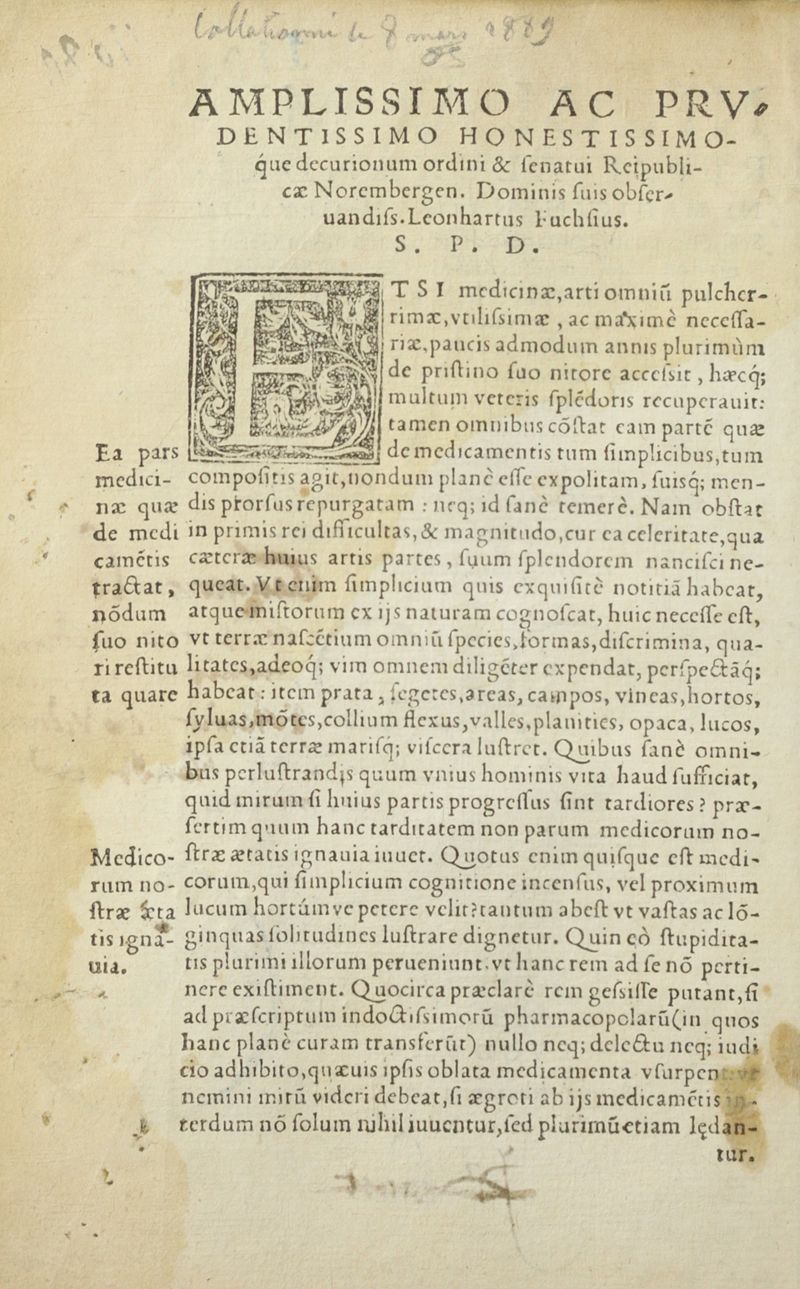 Collationné le 8 mars 1889
AMPLISSIMO AC PRV-
DENTISSIMO HONESTISSIMO-
q́ue decurionum ordini & ſenatui Reipubli-
cæ Norembergen. Dominis ſuis obſer-
uandiſs. Leonhartus Fuchſius.
S. P. D.
ETSI medicinæ, arti omniũ pulcher-
rimæ, vtiliſsimæ, ac maximè neceſſa-
riæ, paucis admodum annis plurimùm
de priſtino ſuo nitore acceſsit, hæcq́;
multum veteris ſplẽdoris recuperauit:
tamen omnibus cõſtat eam partẽ quæ
de medicamentis tum ſimplicibus, tum
compoſitis agit, nondum planè eſſe expolitam, ſuisq́; men-
dis prorſus repurgatam: neq; id ſanè temerè. Nam obſtat
in primis rei difficultas, & magnitudo, cur ea celeritate, qua
cæteræ huius artis partes, ſuum ſplendorem nanciſci ne-
queat. Vt enim ſimplicium quis exquiſitè notitiã habeat,
atque miſtorum ex ijs naturam cognoſcat, huic neceſſe eſt,
vt terræ naſcẽtium omniũ ſpecies, formas, diſcrimina, qua-
litates, adeoq́; vim omnem diligẽter expendat, perſpectãq́;
habeat: item prata, ſegetes, areas, campos, vineas, hortos,
ſyluas, mõtes, collium flexus, valles, planities, opaca, lucos,
ipſa etiã terræ mariſq; viſcera luſtret. Quibus ſanè omni-
bus perluſtrandis quum vnius hominis vita haud ſufficiat,
quid mirum ſi huius partis progreſſus ſint tardiores? præ-
ſertim quum hanc tarditatem non parum medicorum no-
ſtræ ætatis ignauia iuuet. Quotus enim quiſque eſt medi-
corum, qui ſimplicium cognitione incenſus, vel proximum
lucum hortúmve petere velit? tantum abeſt vt vaſtas ac lõ-
ginquas ſolitudines luſtrare dignetur. Quin eò ſtupidita-
tis plurimi illorum perueniunt, vt hanc rem ad ſe nõ perti-
nere exiſtiment. Quocirca præclarè rem geſsiſſe putant, ſi
ad præſcriptum indoctiſsimorũ pharmacopolarũ (in quos
hanc planè curam transferũt) nullo neq; delectu neq; iudi
cio adhibito, quæuis ipſis oblata medicamenta vſurpent: vt
nemini mirũ videri debeat, ſi ægroti ab ijs medicamẽtis in-
terdum nõ ſolum nihil iuuentur, ſed plurimũ etiam lędan-
tur.
Ea pars
medici-
næ quæ
de medi
camẽtis
tractat,
nõdum
ſuo nito
ri reſtitu
ta quare
Medico-
rum no-
ſtræ æta
tis igna-
uia.